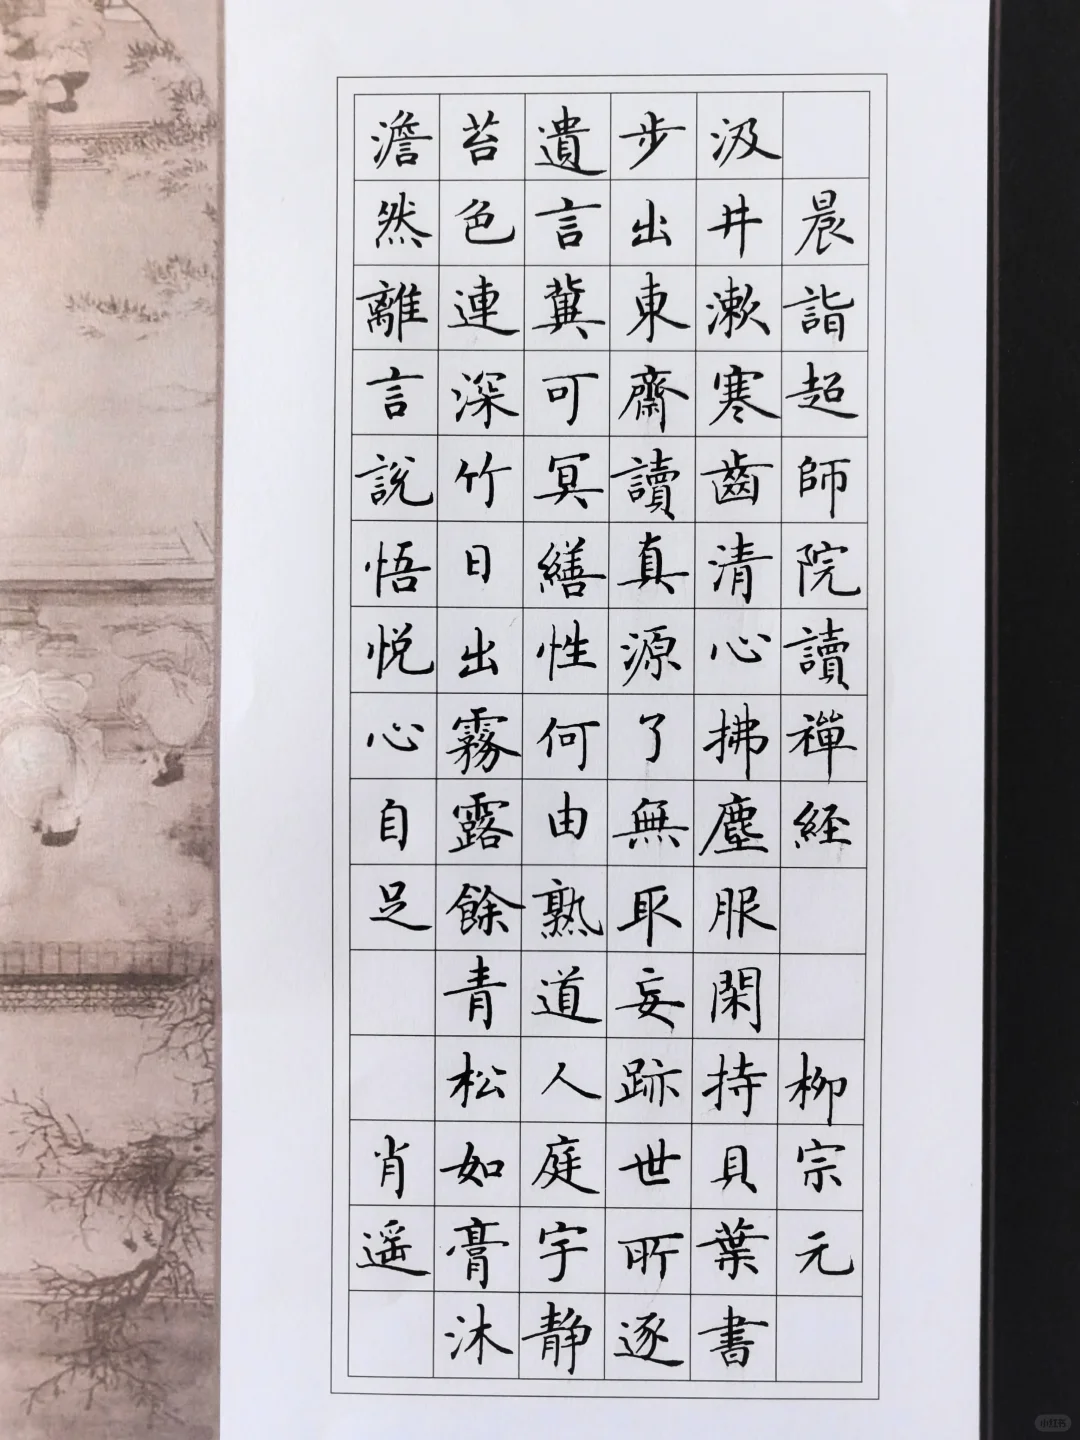 晨詣超師院讀禪経 柳宗元
汲井漱寒齒清心拂塵服閑持貝葉書
步出東齋讀真源了無取妄跡世所逐
遺言冀可冥繕性何由熟道人庭宇静
苔色連深竹日出霧露餘青松如膏沐
澹然離言說悟悅心自足 肖遥
小红书